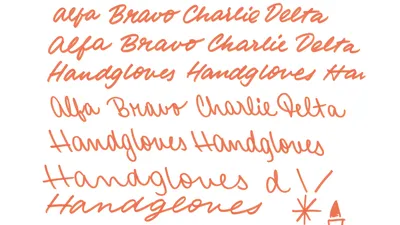 alfa Bravo Charlie Delta
Alfa Bravo Charlie Delta
Handgloves Handgloves Han
Alfa Bravo Charlie Delta
Handgloves Handgloves
Handgloves d
Handgloves